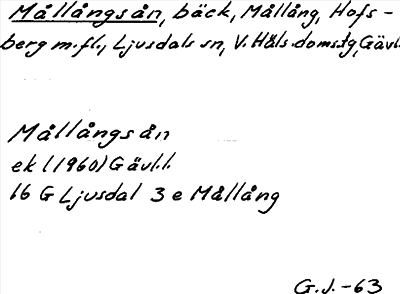 Mållångsån, bäck, Mållång, Hofs-
berg m.fl., Ljusdals sn, V. Häls. domstg, Gävl.
Mållångsån
ek (1960) Gävl.l.
16 G Ljusdal 3 e Mållång
G.J. -63